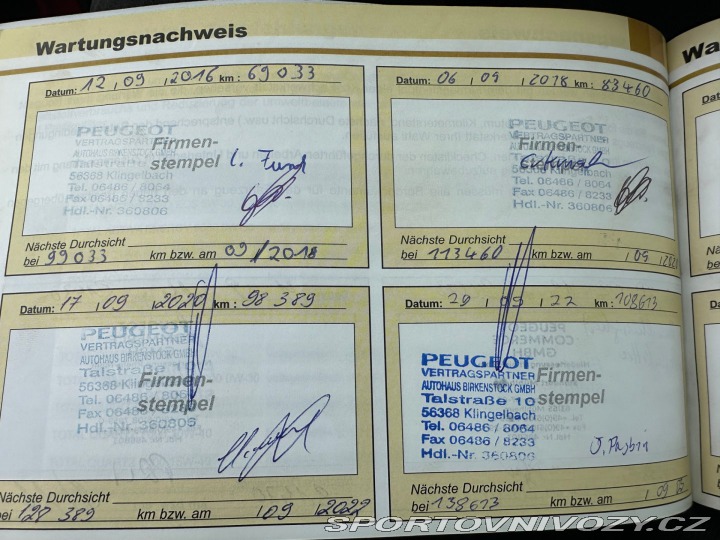 Wartungsnachweis
Datum: 12 , 09 , 2016 km : 69 033
PEUGEOT
VERTRAGSPARTNER
AUTOHAUS BIRKENSTOCK GMBH
Talstraße 10
56368 Klingelbach
Tel. 06486 / 8064
Fax 06486 / 8233
Hdl.-Nr. 360806
Firmen-
stempel
Nächste Durchsicht
bei 99 033 km bzw. am 09 / 2018
Datum: 06 , 09 , 2018 km : 83 460
PEUGEOT
VERTRAGSPARTNER
AUTOHAUS BIRKENSTOCK GMBH
Talstraße 10
56368 Klingelbach
Tel. 06486 / 8064
Fax 06486 / 8233
Hdl.-Nr. 360806
Firmen-
Nächste Durchsicht
bei 113 460 km bzw. am , 09 ,
Datum: 17 , 09 , 2020 km : 98 389
PEUGEOT
VERTRAGSPARTNER
AUTOHAUS BIRKENSTOCK GMBH
Talstraße 10
56368 Klingelbach
Tel. 06486 / 8064
Fax 06486 / 8233
Hdl.-Nr. 360806
Firmen-
stempel
Nächste Durchsicht
bei 128 389 km bzw. am , 09 , 2022
Datum: 29 , 09 , 22 km : 108613
PEUGEOT
VERTRAGSPARTNER
AUTOHAUS BIRKENSTOCK GMBH
Talstraße 10
56368 Klingelbach
Tel. 06486 / 8064
Fax 06486 / 8233
Hdl.-Nr. 360806
Firmen-
stempel
Nächste Durchsicht
bei 138613 km bzw. am , 09
SPORTOVNIVOZY.CZ